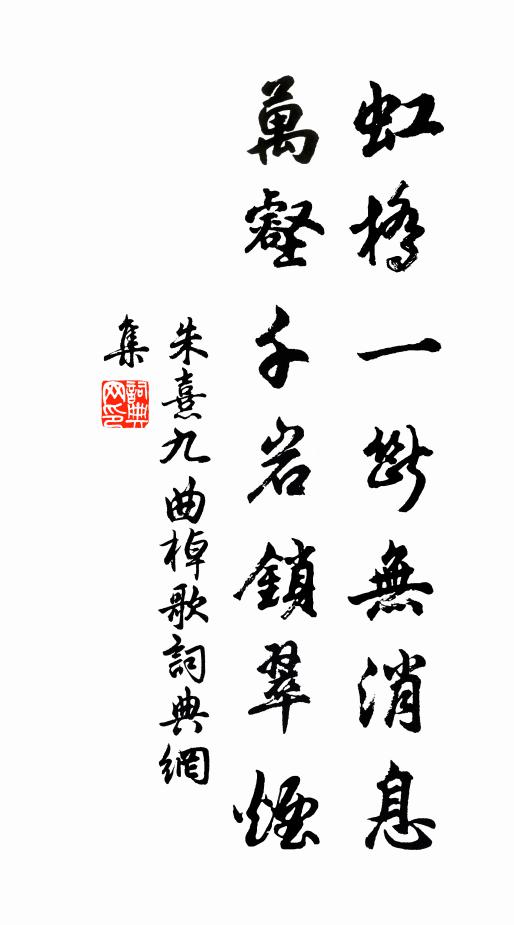 虹橋一斷無消息
萬壑千岩鎖翠煙
朱熹九曲棹歌詞典網
集
詞典
网印